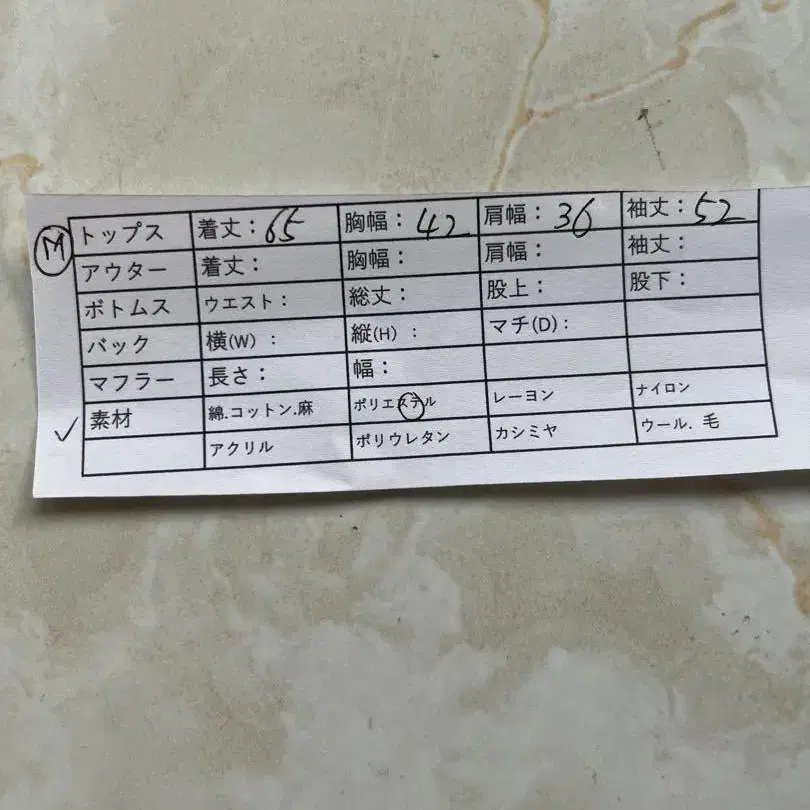 M トップス 着丈：65 胸幅：42 肩幅：36 袖丈：52
アウター 着丈： 胸幅： 肩幅： 袖丈：
ボトムス ウエスト： 総丈： 股上： 股下：
バック 横(W)： 縦(H)： マチ(D)：
マフラー 長さ： 幅：
素材 綿.コットン.麻 ポリエステル レーヨン ナイロン
アクリル ポリウレタン カシミヤ ウール. 毛